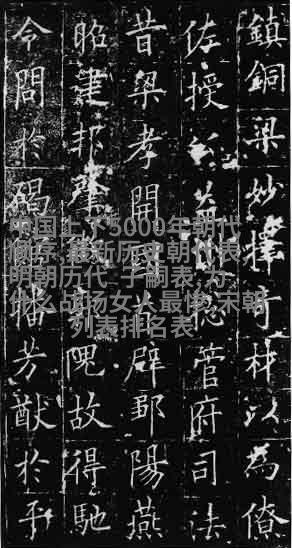 鎮銅梁妙擇奇材以為僚
佐授益總管府司法
昔梁孝開國首辟鄒陽燕
昭建邦肇隗故得馳
令問於碣播芳猷於平
中国上下5000年朝代
顺序,最新历史朝代表
明朝历代 字嗣表,为
什么战场女人最惨,宋朝
列表排名表